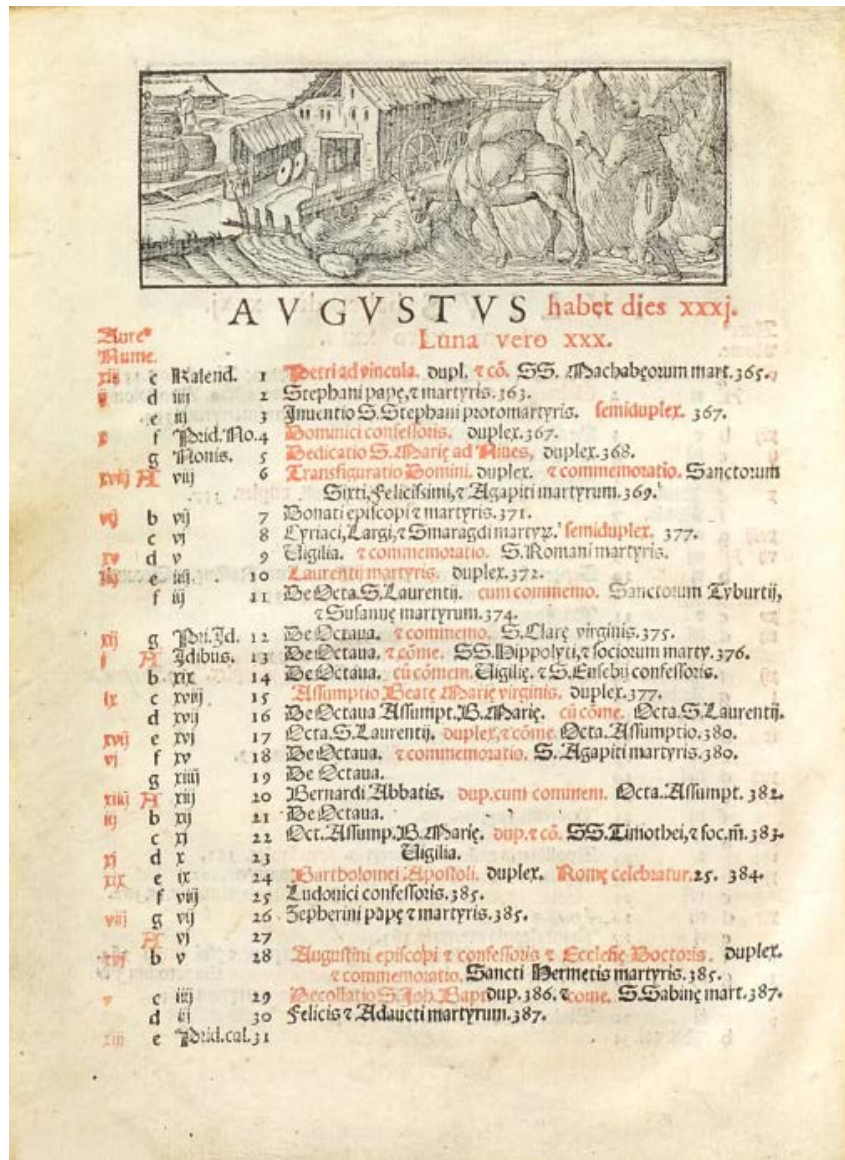 AVGVSTVS habet dies xxxj.
Luna vero xxx.
Aure⁹
Nume.
c Kalend. 1 Petri ad vincula. dupl. ⁊ cō. SS. Machabęorum mart. 365.
d iiij 2 Stephani papę, ⁊ martyris. 363.
e iij 3 Inuentio S. Stephani protomartyris. semiduplex. 367.
x f Prid. No. 4 Dominici confessoris. duplex. 367.
g Nonis. 5 Dedicatio S. Marię ad Niues, duplex. 368.
xviij A viij 6 Transfiguratio Domini. duplex. ⁊ commemoratio. Sanctorum
Sixti, Felicissimi, ⁊ Agapiti martyrum. 369.
vij b vij 7 Donati episcopi ⁊ martyris. 371.
c vj 8 Cyriaci, Largi, ⁊ Smaragdi martyꝝ. semiduplex. 377.
xv d v 9 Uigilia. ⁊ commemoratio. S. Romani martyris.
iiij e iiij 10 Laurentij martyris. duplex. 372.
f iij 11 De Octa. S. Laurentij. cum commemo. Sanctorum Tyburtij,
⁊ Susannę martyrum. 374.
xij g Pri. Id. 12 De Octaua. ⁊ commemo. S. Clarę virginis. 375.
j A Idibus. 13 De Octaua. ⁊ cōme. SS. Hippolyti, ⁊ sociorum marty. 376.
b xix 14 De Octaua. cū cōmem. Uigilię. ⁊ S. Eusebij confessoris.
ix c xviij 15 Assumptio Beatę Marię virginis. duplex. 377.
d xvij 16 De Octaua Assumpt. B. Marię. cū cōme. Octa. S. Laurentij.
xvij e xvj 17 Octa. S. Laurentij. duplex, ⁊ cōme. Octa. Assumptio. 380.
vj f xv 18 De Octaua. ⁊ commemoratio. S. Agapiti martyris. 380.
g xiiij 19 De Octaua.
xiiij A xiij 20 Bernardi Abbatis. dup. cum commem. Octa. Assumpt. 382.
iij b xij 21 De Octaua.
c xj 22 Oct. Assump. B. Marię. dup. ⁊ cō. SS. Timothei, ⁊ soc. m̄. 383.
xj d x 23 Uigilia.
xix e ix 24 Bartholomei Apostoli. duplex. Romę celebratur. 25. 384.
f viij 25 Ludouici confessoris. 385.
viij g vij 26 Zepherini papę ⁊ martyris. 385.
A vj 27
xvj b v 28 Augustini episcopi ⁊ confessoris ⁊ Ecclesię Doctoris. duplex.
⁊ commemoratio. Sancti Hermetis martyris. 385.
v c iiij 29 Decollatio S. Joh. Bapt. dup. 386. ⁊ come. S. Sabinę mart. 387.
d iij 30 Felicis ⁊ Adaucti martyrum. 387.
xiij e Prid. cal. 31